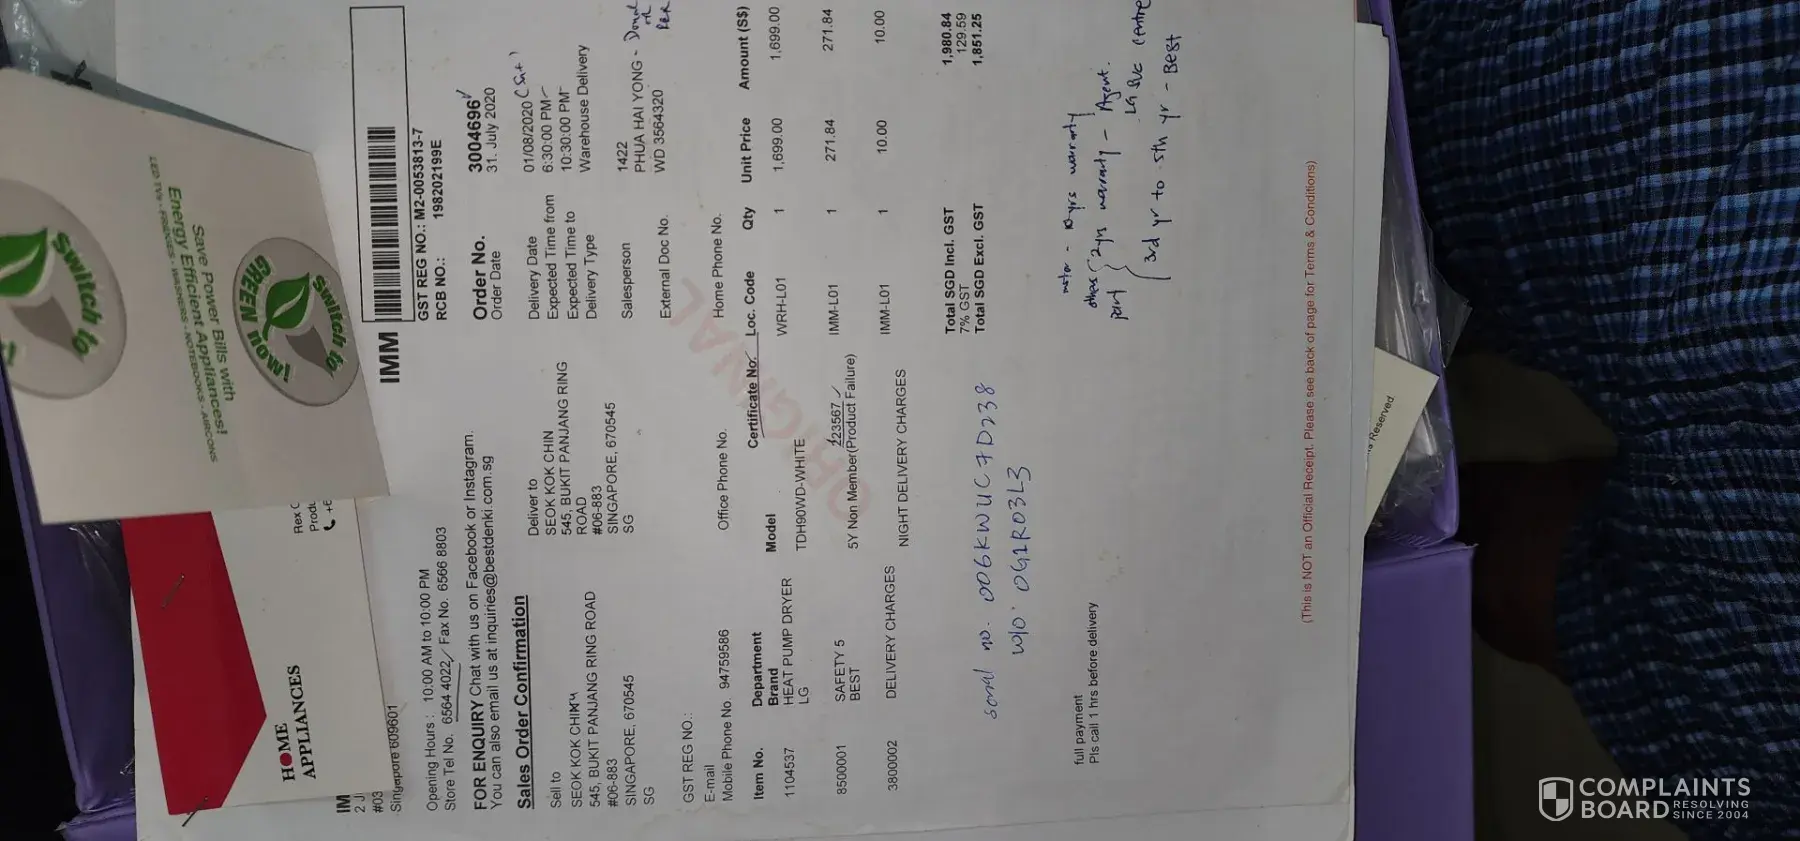 Switch to
Save Power Bills with
Energy Efficient Appliances!
LED TVs • FRIDGES • WASHERS • NOTEBOOKS • AIRCONS
Switch to
GREEN
NOW!
HOME
APPLIANCES
Rex
Produ
IMM
2 J
#03
Singapore 609601
Opening Hours : 10:00 AM to 10:00 PM
Store Tel No. 6564 4022 / Fax No. 6566 8803
FOR ENQUIRY Chat with us on Facebook or Instagram.
You can also email us at inquiries@bestdenki.com.sg
IMM
GST REG NO.: M2-0053813-7
RCB NO.: 198202199E
Sales Order Confirmation
Order No. 3004696
Order Date 31. July 2020
Sell to
SEOK KOK CHIN
545, BUKIT PANJANG RING ROAD
#06-883
SINGAPORE, 670545
SG
Deliver to
SEOK KOK CHIN
545, BUKIT PANJANG RING
ROAD
#06-883
SINGAPORE, 670545
SG
Delivery Date 01/08/2020 (Sat)
Expected Time from 6:30:00 PM
Expected Time to 10:30:00 PM
Delivery Type Warehouse Delivery
Salesperson 1422
PHUA HAI YONG - Donal
External Doc No. WD 3564320
GST REG NO.:
E-mail
Mobile Phone No. 94759586 Office Phone No. Home Phone No.
ORIGINAL
Item No. Department Brand Model Certificate No. Loc. Code Qty Unit Price Amount (S$)
1104537 HEAT PUMP DRYER LG TDH90WD-WHITE WRH-L01 1 1,699.00 1,699.00
8500001 SAFETY 5 BEST 5Y Non Member(Product Failure) 123567 IMM-L01 1 271.84 271.84
3800002 DELIVERY CHARGES NIGHT DELIVERY CHARGES IMM-L01 1 10.00 10.00
Total SGD Incl. GST 1,980.84
7% GST 129.59
Total SGD Excl. GST 1,851.25
serial no. 006KWUC7D238
W/O' 0G1R03L3
motor - 10yrs warranty
others part { 2yrs warranty - Agent.
LG SVC Centre
3rd yr to 5th yr - Best
full payment
Pls call 1 hrs before delivery
(This is NOT an Official Receipt. Please see back of page for Terms & Conditions)
Reserved.
COMPLAINTS
BOARD RESOLVING
SINCE 2004